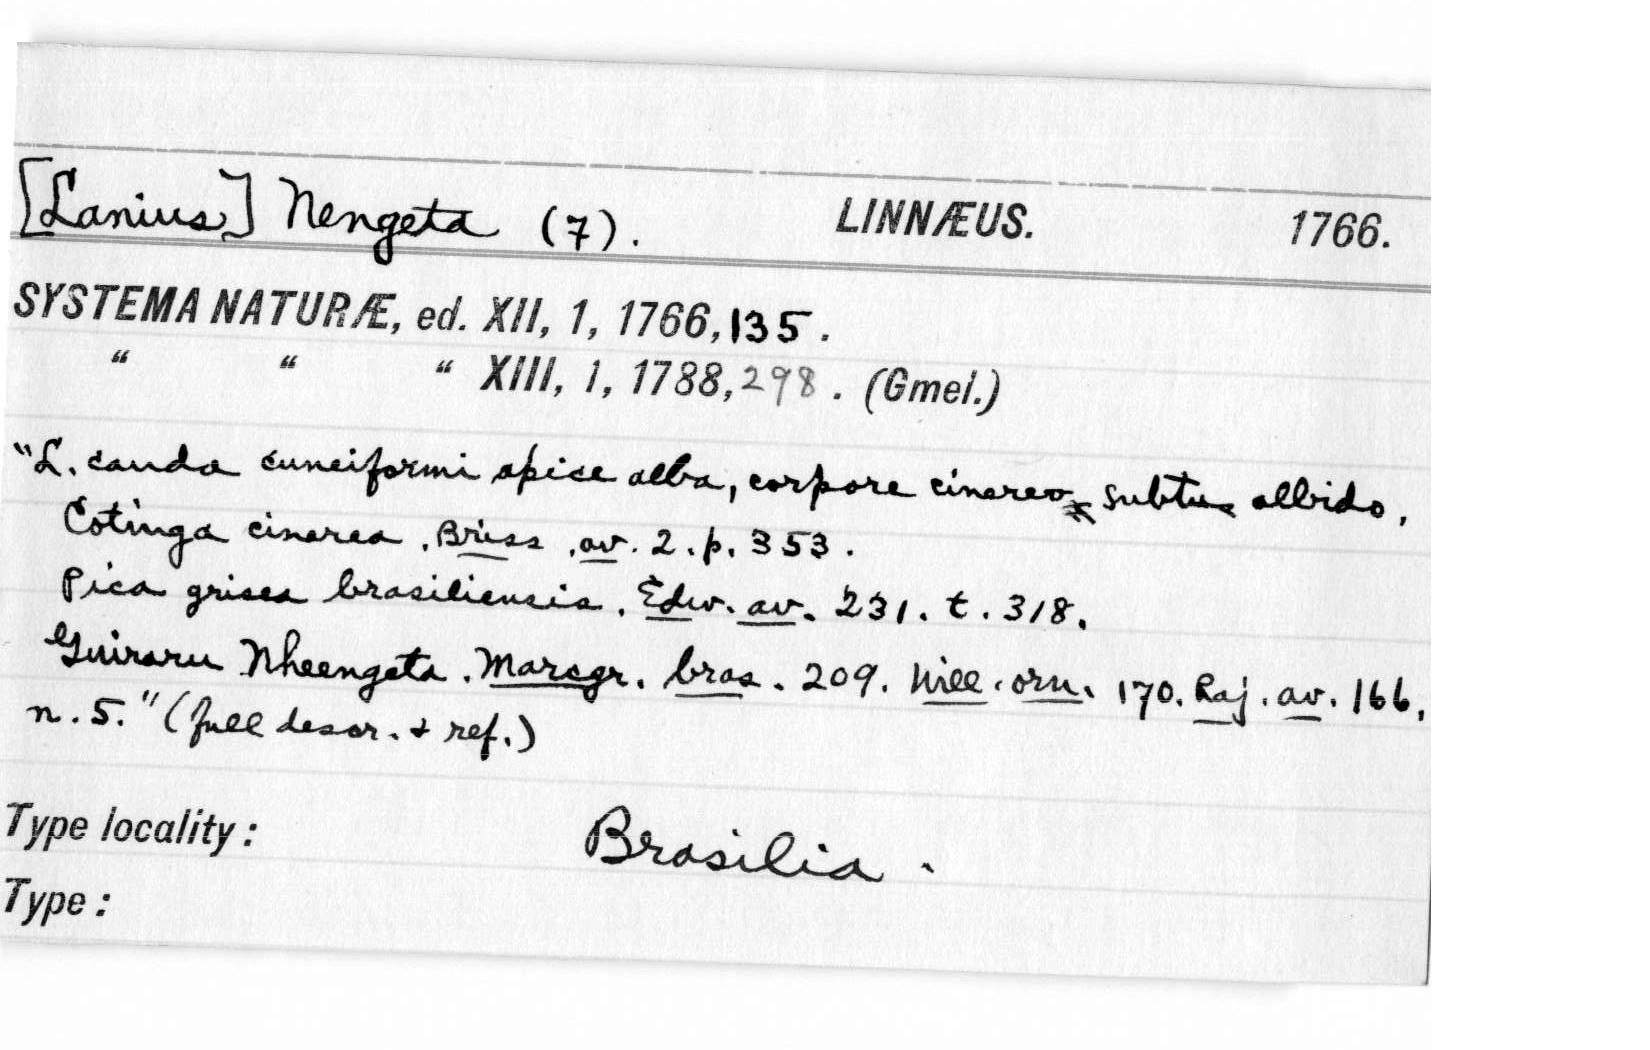 [Lanius] Nengeta (7). LINNÆUS. 1766.
SYSTEMA NATURÆ, ed. XII, 1, 1766, 135.
“ “ “ XIII, 1, 1788, 298. (Gmel.)
"L. cauda cuneiformi apice alba, corpore cinereo subtus albido,
Cotinga cinerea, Briss, av. 2. p. 353.
Pica grisea brasiliensis. Edw. av. 231. t. 318.
Guiraru Nheengeta. Marcgr. bras. 209. Will. orn. 170. Raj. av. 166,
n. 5." (full descr. & ref.)
Type locality: Brasilia.
Type: